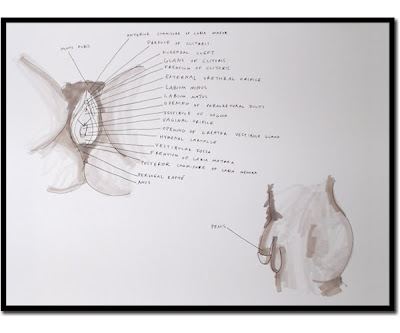 ANTERIOR COMMISURE OF LABIA MAJOR
MONS PUBIS
PREPUCE OF CLITORIS
PUDENDAL CLEFT
GLANS OF CLITORIS
FRENULUM OF CLITORIS
EXTERNAL URETHRAL ORIFICE
LABIUM MINUS
LABIUM MAJUS
OPENING OF PARAURETHRAL DUCTS
VESTIBULE OF VAGINA
VAGINAL ORIFICE
OPENING OF GREATER VESTIBULE GLAND
HYMENAL CARUNCLE
VESTIBULAR FOSSA
FRENULUM OF LABIA MAJORA
POSTERIOR COMMISURE OF LABIA
PERINEAL RAPHÉ
ANUS
PENIS